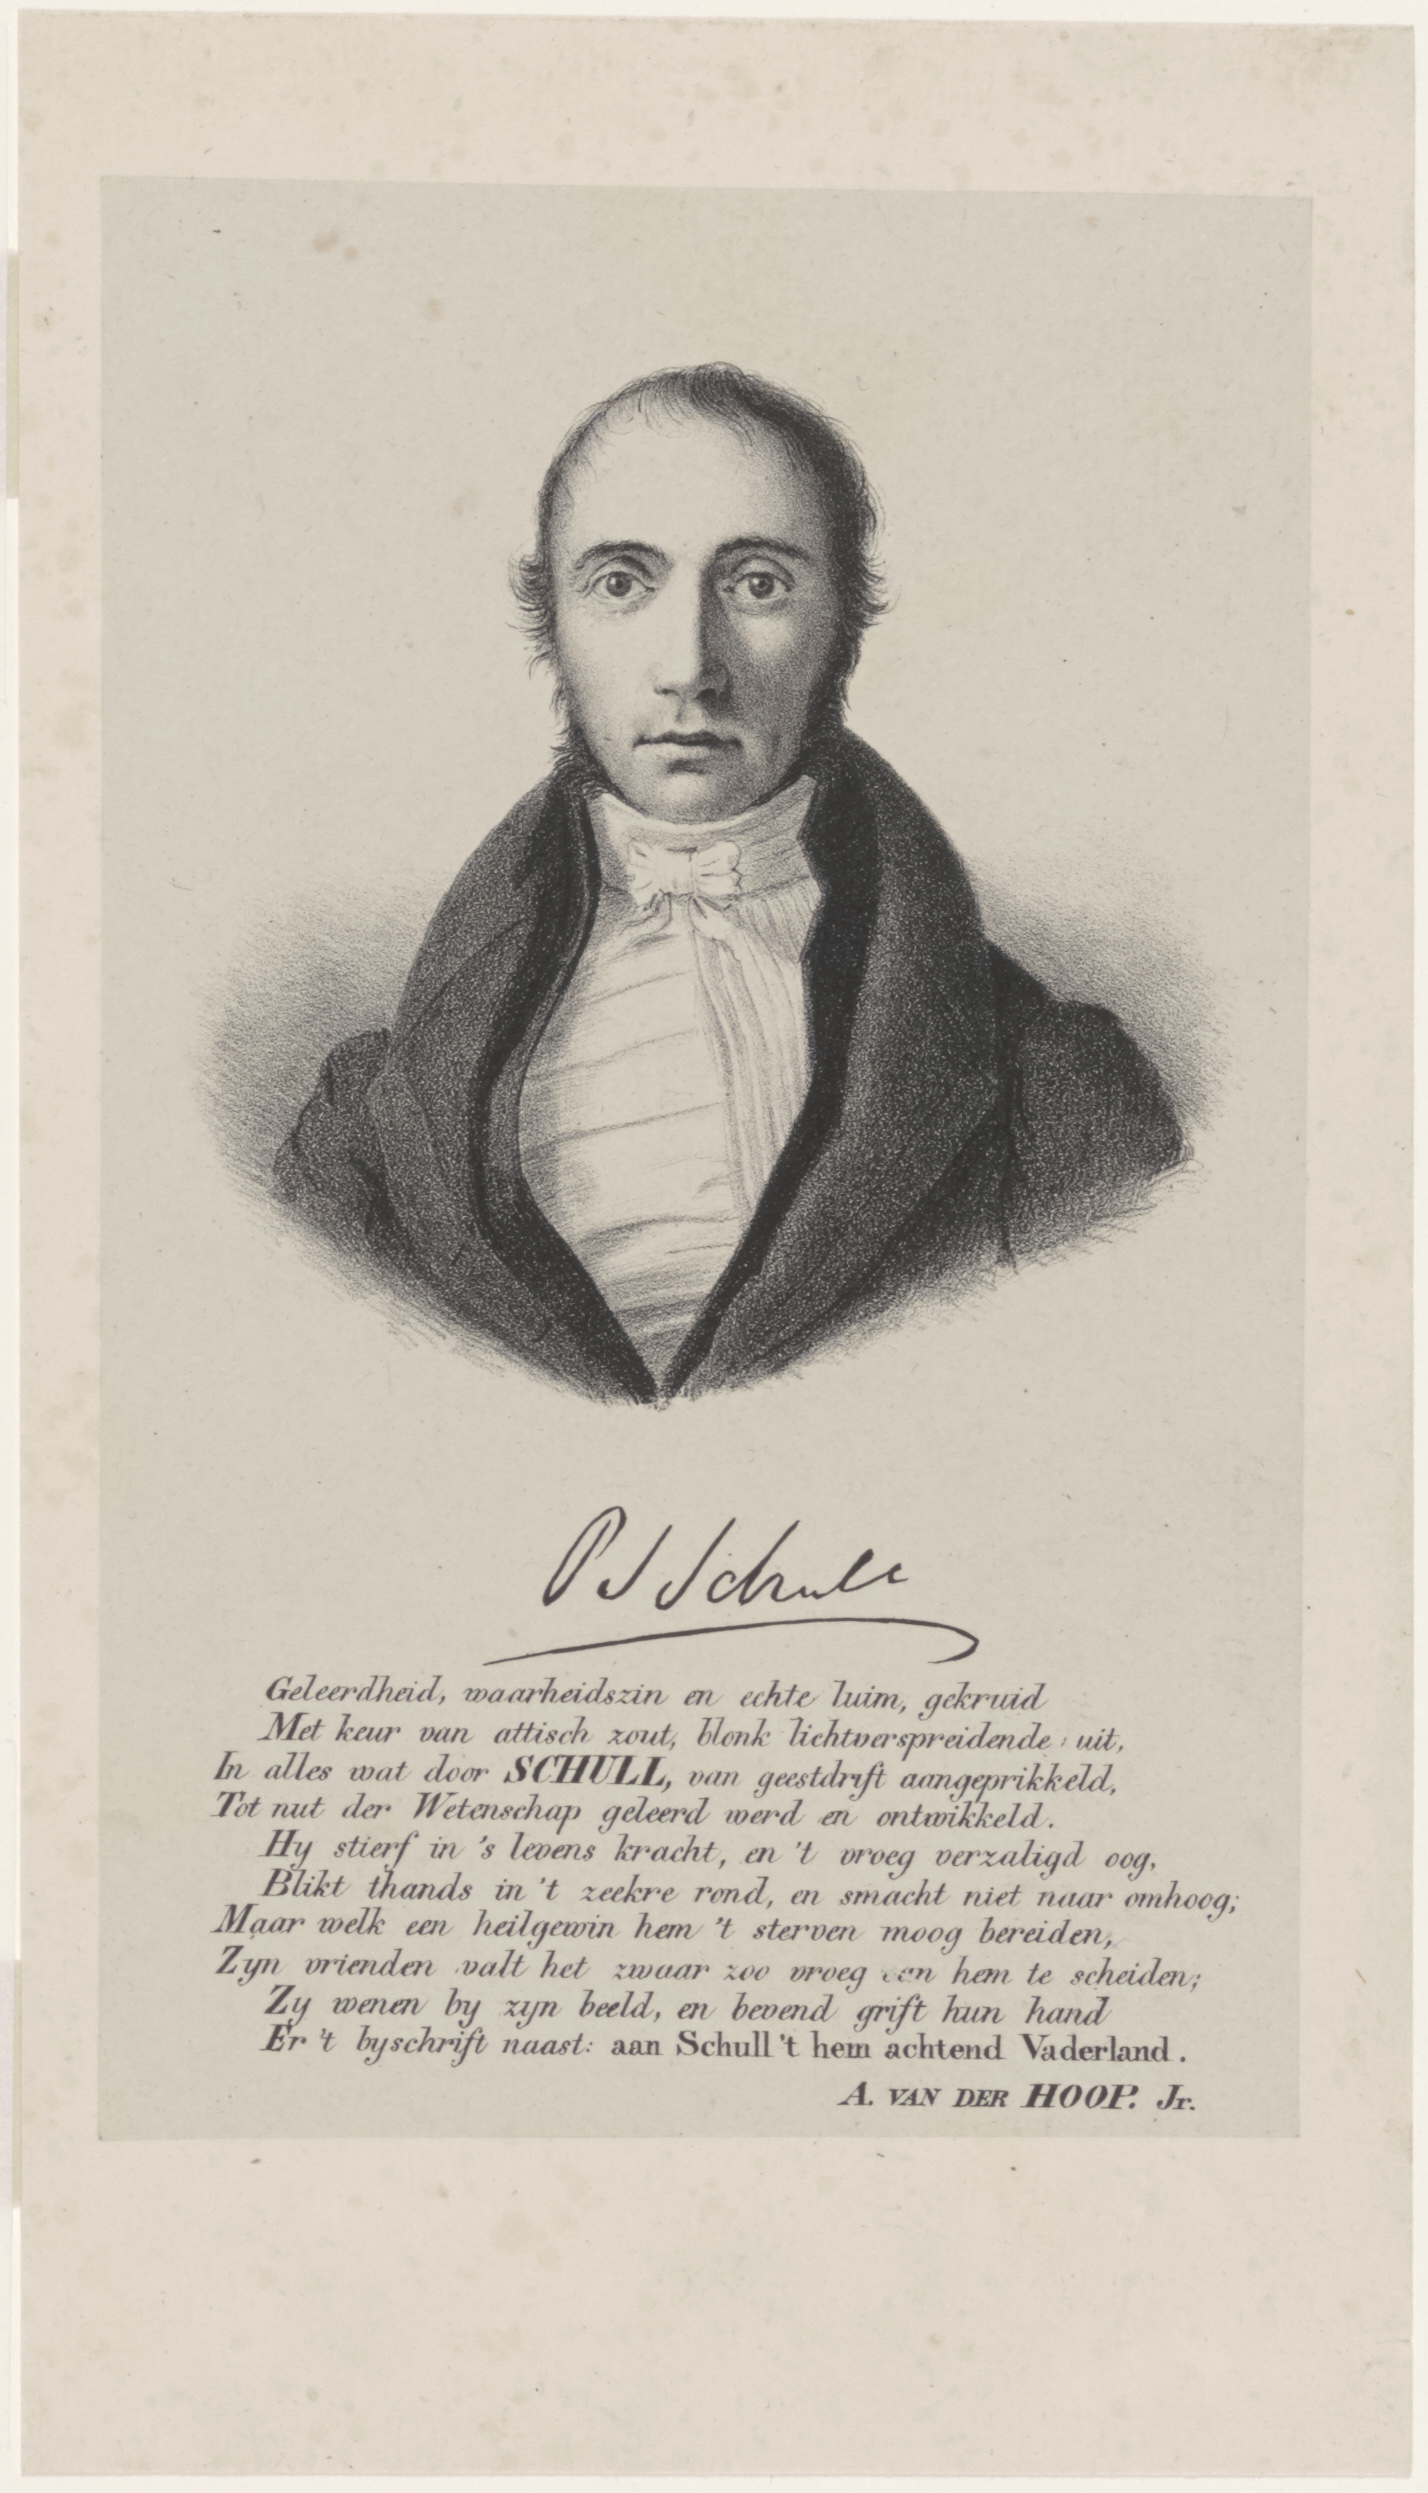 P S Schull
Geleerdheid, waarheidszin en echte luim, gekruid
Met keur van attisch zout, blonk lichtverspreidende uit,
In alles wat door SCHULL, van geestdrift aangeprikkeld,
Tot nut der Wetenschap geleerd werd en ontwikkeld.
Hy stierf in 's levens kracht, en 't vroeg verzaligd oog,
Blikt thands in 't zeekre rond, en smacht niet naar omhoog;
Maar welk een heilgewin hem 't sterven moog bereiden,
Zyn vrienden valt het zwaar zoo vroeg van hem te scheiden;
Zy wenen by zyn beeld, en bevend grift hun hand
Er 't byschrift naast: aan Schull 't hem achtend Vaderland.
A. VAN DER HOOP. Jr.